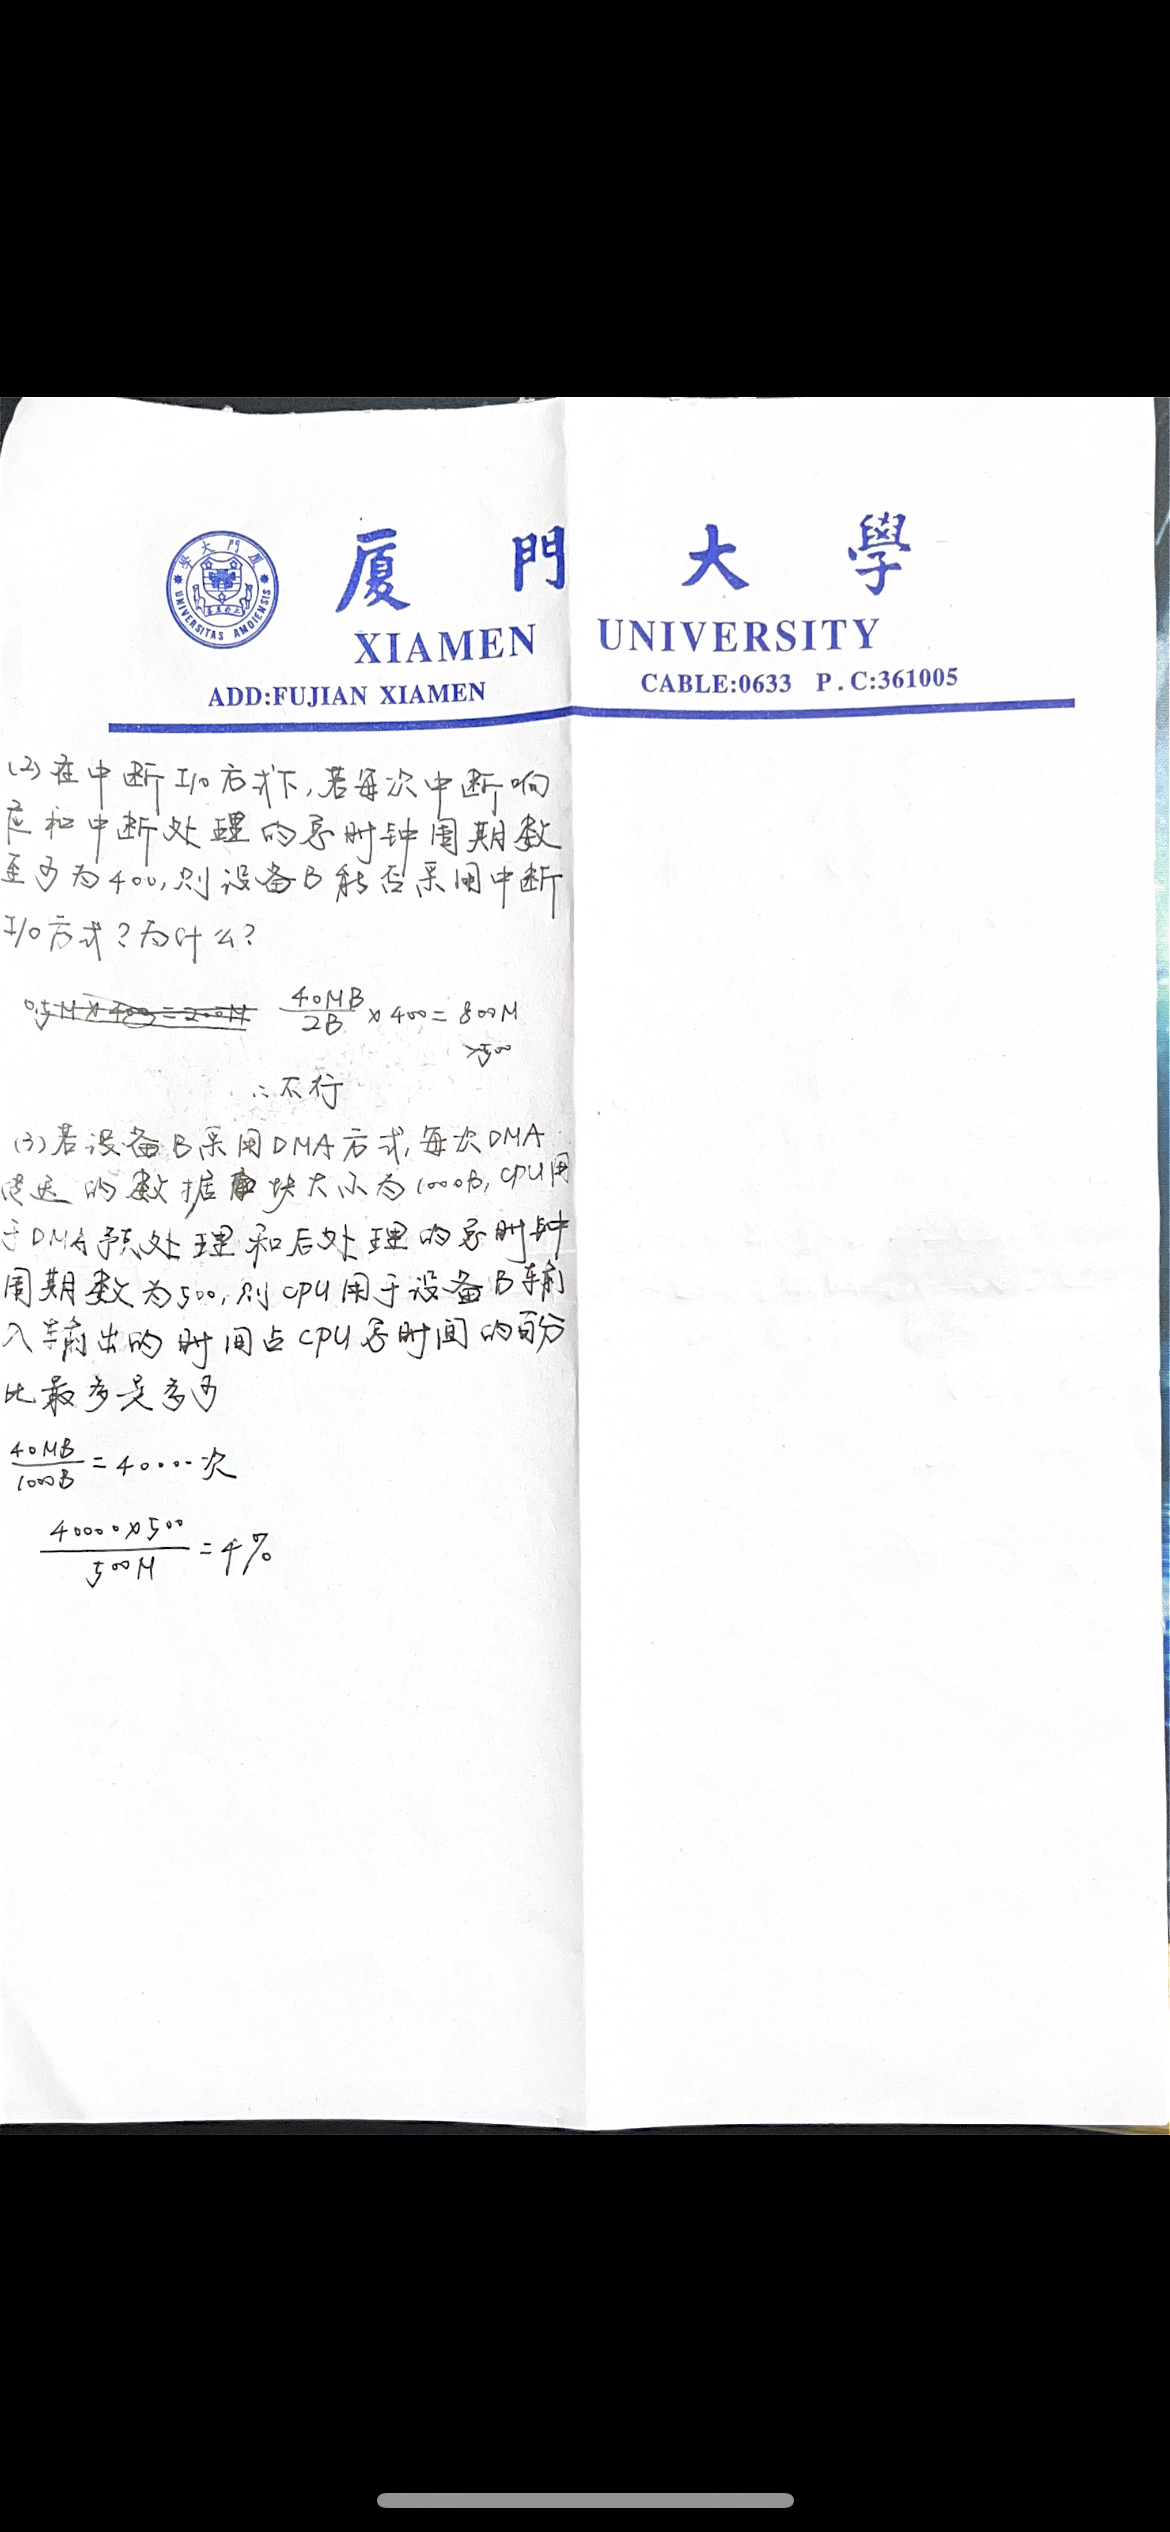 廈門大學
XIAMEN UNIVERSITY
ADD:FUJIAN XIAMEN CABLE:0633 P.C:361005
學大門廈
UNIVERSITAS AMOIENSIS
(2)在中断I/O方式下,若每次中断响
应和中断处理的总时钟周期数
至少为400,则设备B能否采用中断
I/O方式?为什么?
0.5M×400=200M 40MB/2B × 400 = 800M
>500
∴不行
(3)若设备B采用DMA方式,每次DMA
传送的数据块大小为1000B,CPU用
于DMA预处理和后处理的总时钟
周期数为500,则CPU用于设备B输
入输出的时间占CPU总时间的百分
比最多是多少
40MB/1000B = 40000次
40000×500/500M = 4%